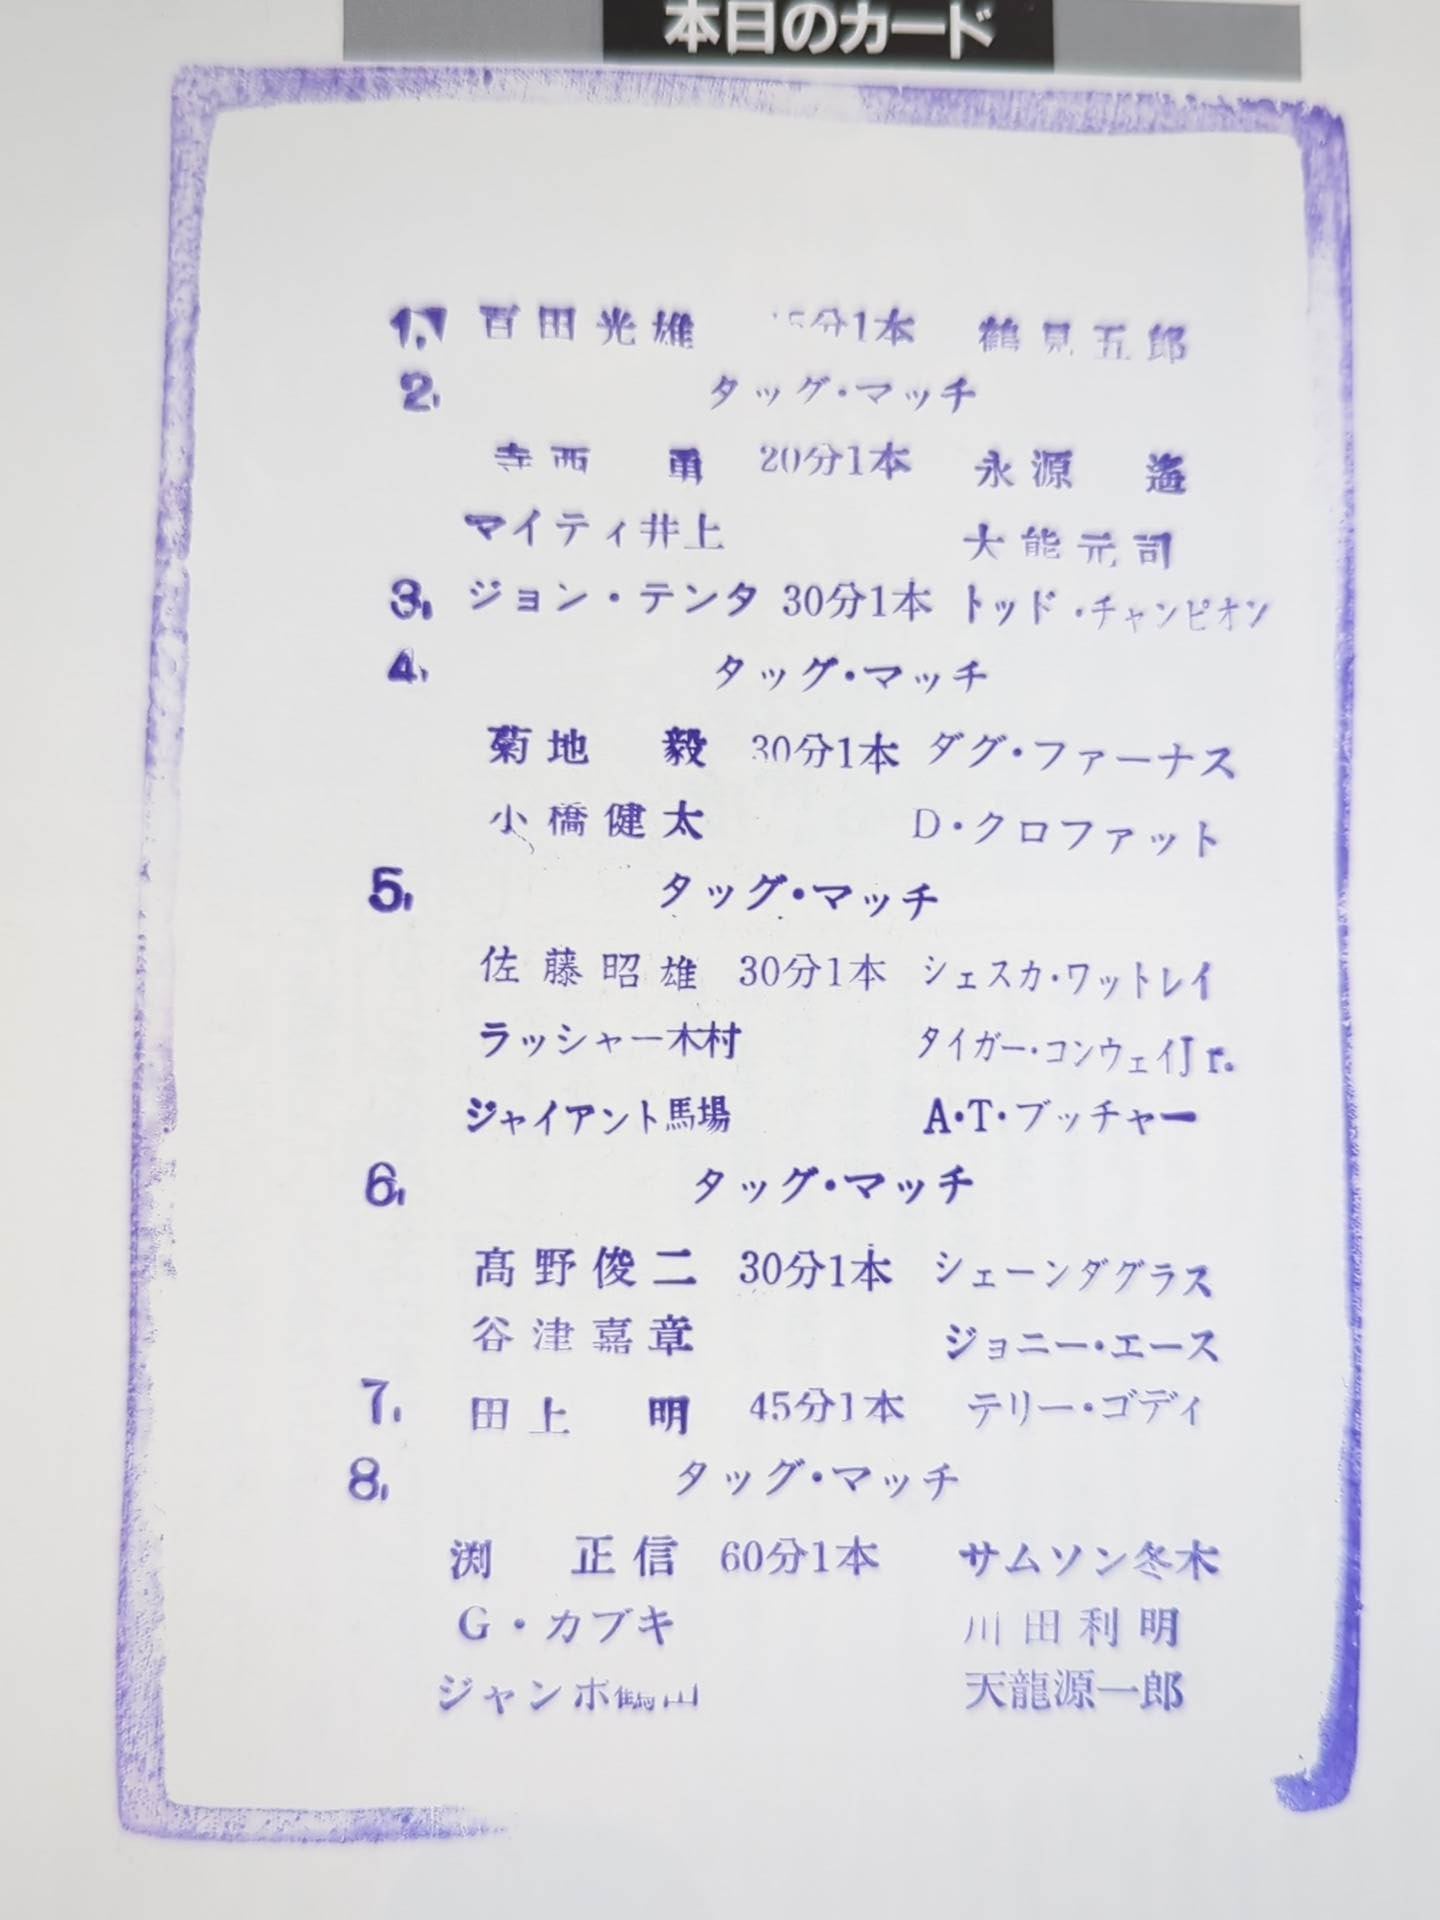 本日のカード
1. 百田光雄 15分1本 鶴見五郎
2. タッグ・マッチ
寺西 勇 20分1本 永源 遙
マイティ井上 大熊元司
3. ジョン・テンタ 30分1本 トッド・チャンピオン
4. タッグ・マッチ
菊地 毅 30分1本 ダグ・ファーナス
小橋健太 D・クロファット
5. タッグ・マッチ
佐藤昭雄 30分1本 シェスカ・ワットレイ
ラッシャー木村 タイガー・コンウェイJr.
ジャイアント馬場 A・T・ブッチャー
6. タッグ・マッチ
髙野俊二 30分1本 シェーンダグラス
谷津嘉章 ジョニー・エース
7. 田上 明 45分1本 テリー・ゴディ
8. タッグ・マッチ
渕 正信 60分1本 サムソン冬木
G・カブキ 川田利明
ジャンボ鶴田 天龍源一郎